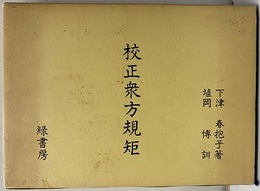 下津 春抱子著
埴岡 博訓
校正衆方規矩
緑書房